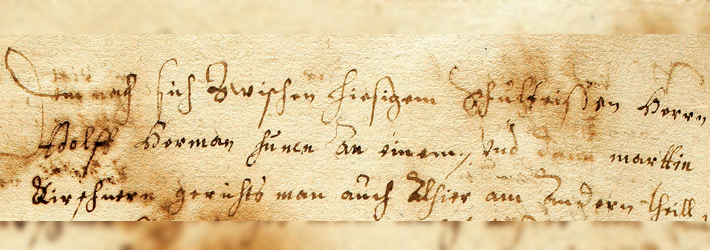 Dem nach sich Zwischen hiesigem Schulteissen Herrn
Adolff Herman an einem, vnd dann marttin
Kirschnern gerichts man auch Alhier am andern theill